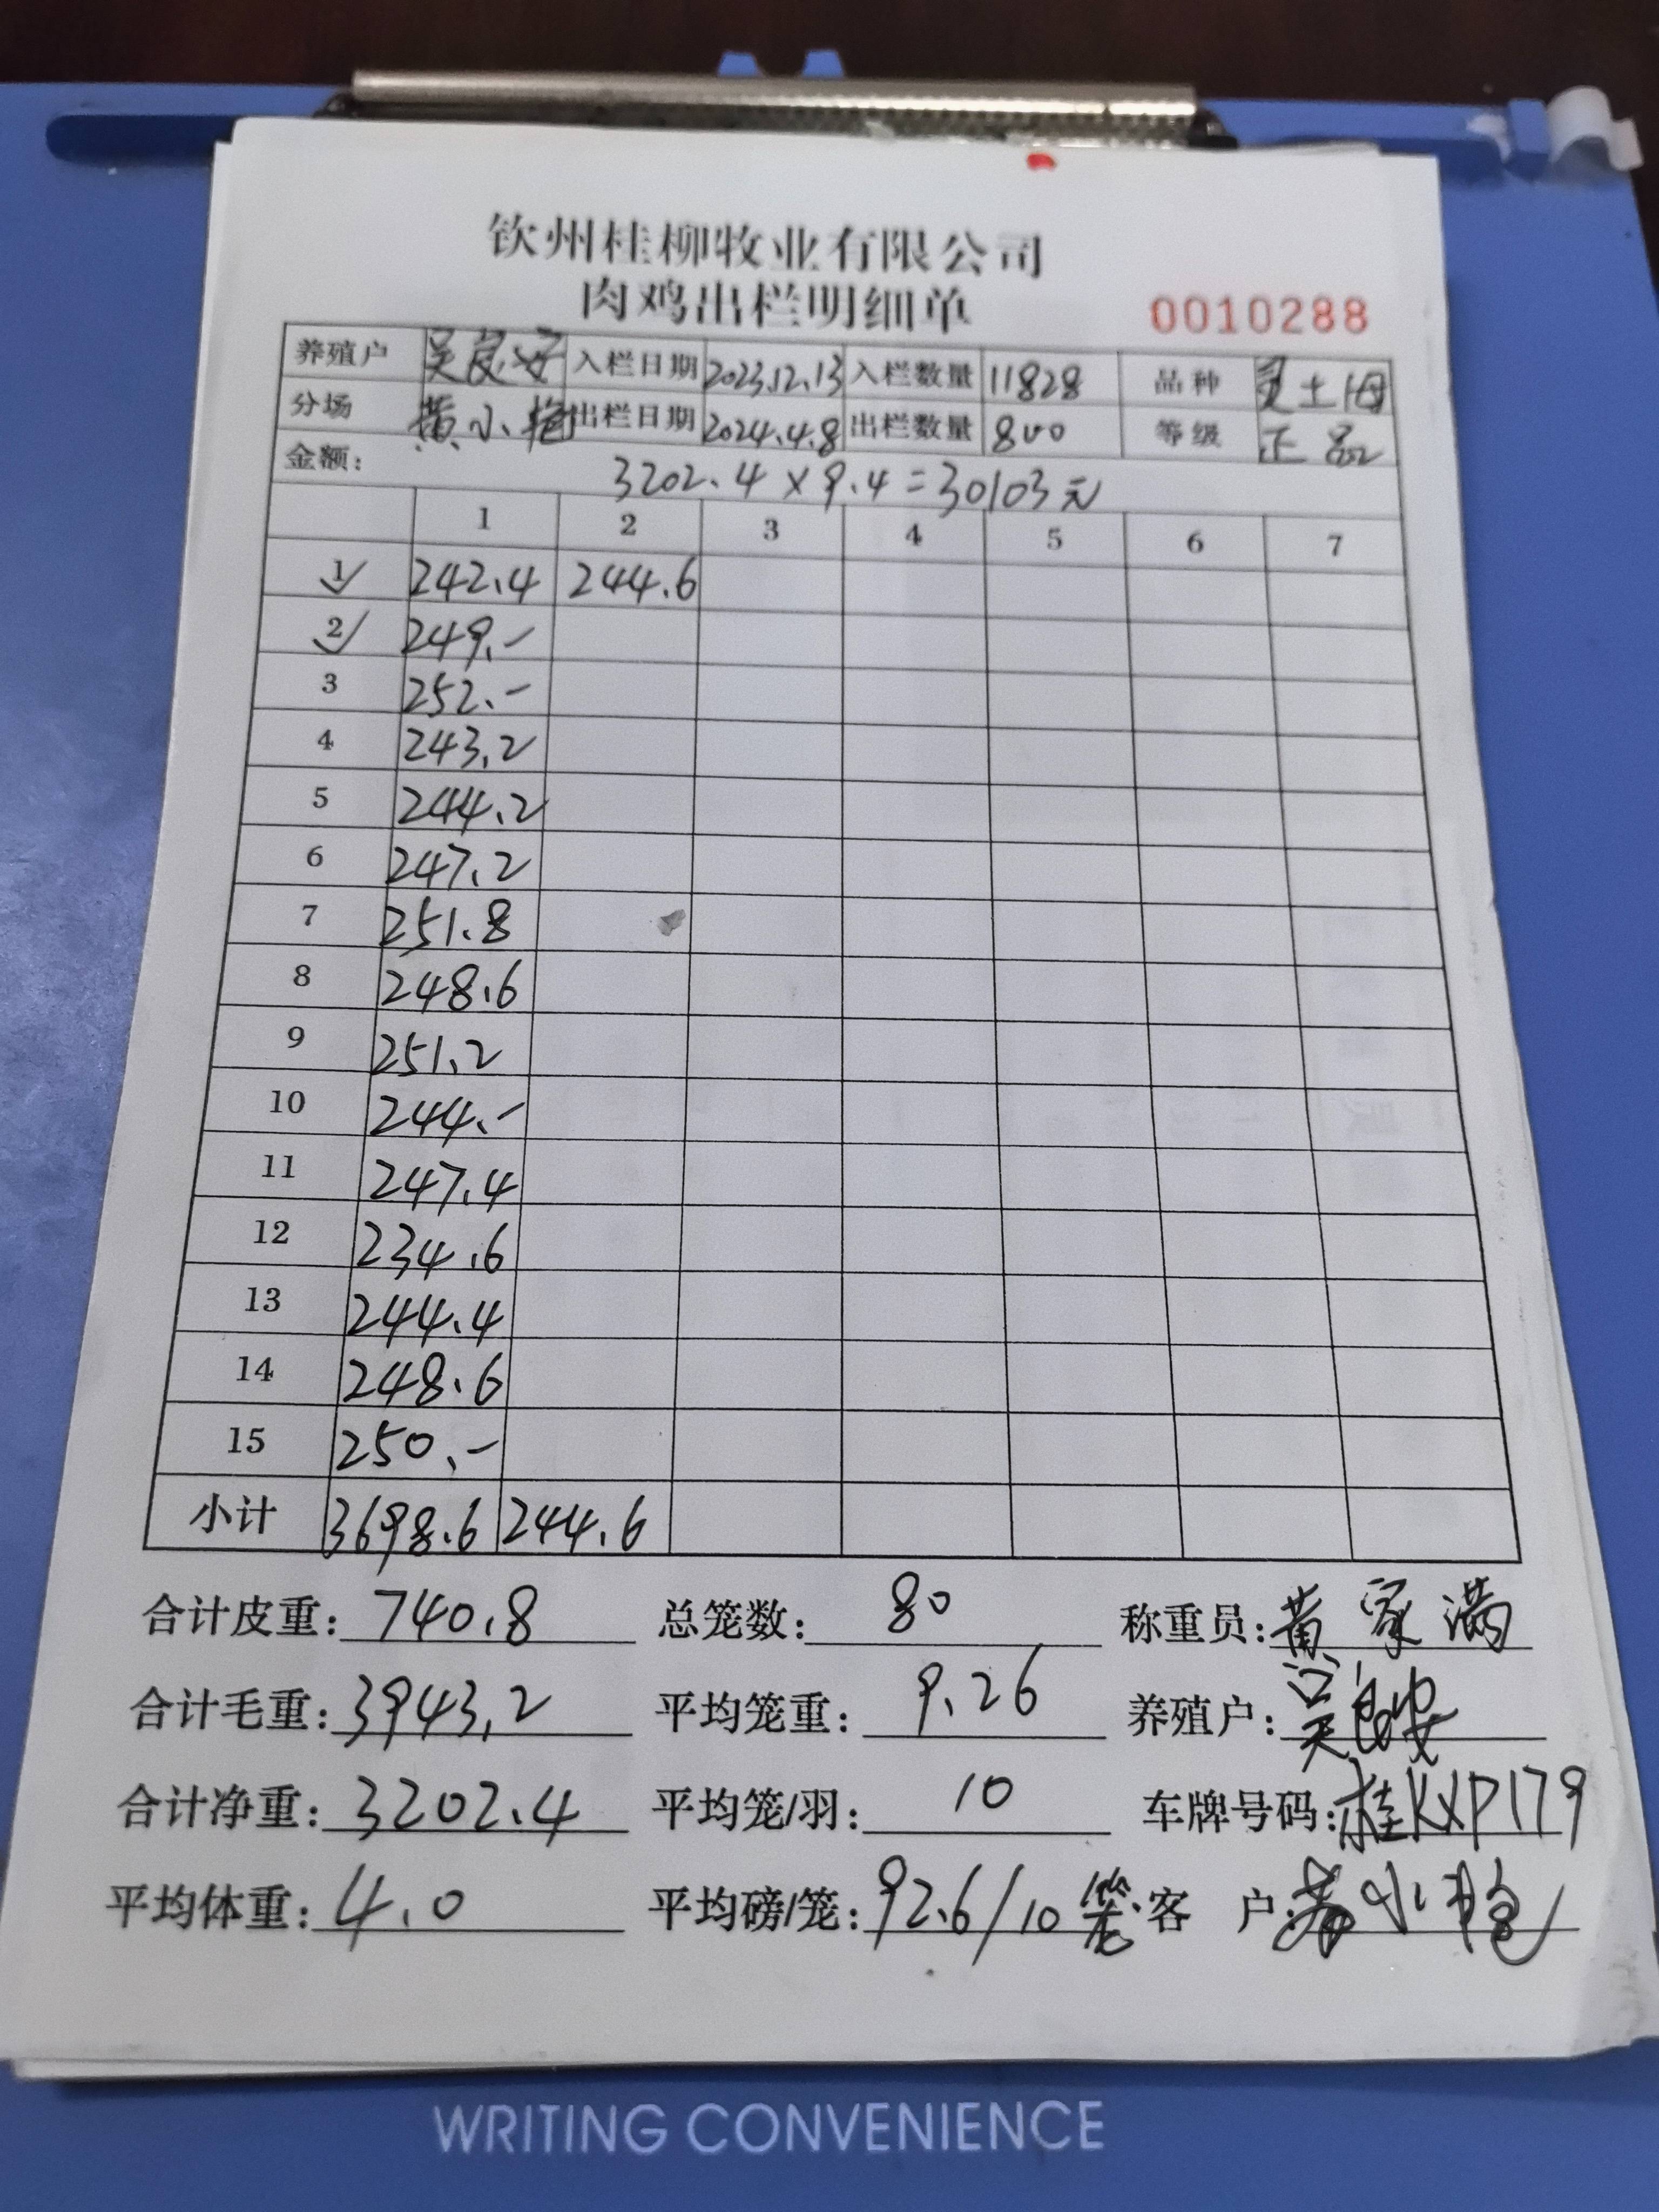 钦州桂柳牧业有限公司
肉鸡出栏明细单 0010288
养殖户 吴良安 入栏日期 2023.12.13 入栏数量 11828 品种 土母
分场 黄小艳 出栏日期 2024.4.8 出栏数量 800 等级 正品
金额: 3202.4×9.4=30103元
1 2 3 4 5 6 7
1 242.4 244.6
2 249.-
3 252.-
4 243.2
5 244.2
6 247.2
7 251.8
8 248.6
9 251.2
10 244.-
11 247.4
12 234.6
13 244.4
14 248.6
15 250.-
小计 3698.6 244.6
合计皮重: 740.8 总笼数: 80 称重员: 黄家满
合计毛重: 3943.2 平均笼重: 9.26 养殖户: 吴良安
合计净重: 3202.4 平均笼/羽: 10 车牌号码: 桂KXP179
平均体重: 4.0 平均磅/笼: 92.6/10笼 客 户: 黄小艳
WRITING CONVENIENCE